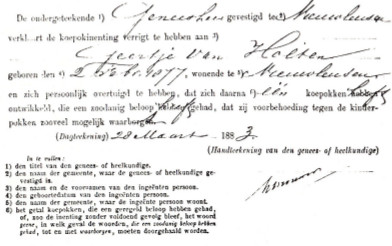 De ondergeteekende ¹) Geneesheer gevestigd te ²) Nieuwleusen
verklaart de koepokinenting verrigt te hebben aan ³)
Geertje van Holten
geboren den ⁴) 2 Febr. 1877, wonende te ⁵) Nieuwleusen
en zich persoonlijk overtuigd te hebben, dat zich daarna ⁶) één koepokken hebben
ontwikkeld, die een zoodanig beloop heeft gehad, dat zij voorbehoeding tegen de kinder-
pokken zooveel mogelijk waarborgt.
(Dagteekening) 28 Maart 1883.
(Handteekening van den genees- of heelkundige)
In te vullen:
1) den titel van den genees- of heelkundige.
2) den naam der gemeente, waar de genees- of heelkundige ge-
vestigd is.
3) den naam en de voornamen van den ingeënten persoon.
4) den geboortedatum van den ingeënten persoon.
5) den naam der gemeente, waar de ingeënte persoon woont.
6) het getal koepokken, die een geregeld beloop hebben gehad,
of, zoo de inenting zonder voldoend gevolg bleef, het woord
geene, in welk geval de woorden, die een zoodanig beloop hebben
gehad, tot en met waarborgen, moeten doorgehaald worden.